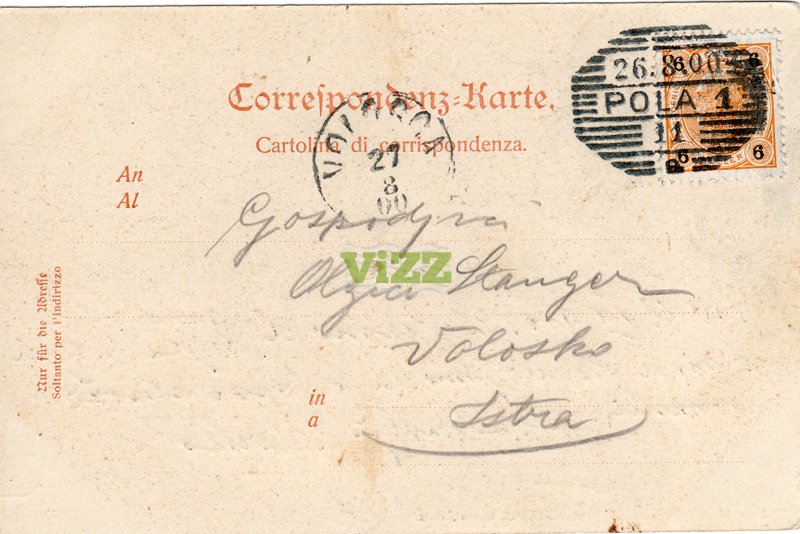 26.8.00
POLA 1
11
6 6
6 6
Correspondenz-Karte.
Cartolina di corrispondenza.
VOLOSCA
27
8
00
An
Al
Gospodjici
Olgici Stanger
Volosko
Istra
in
a
Nur für die Adresse
Soltanto per l'indirizzo
ViZZ